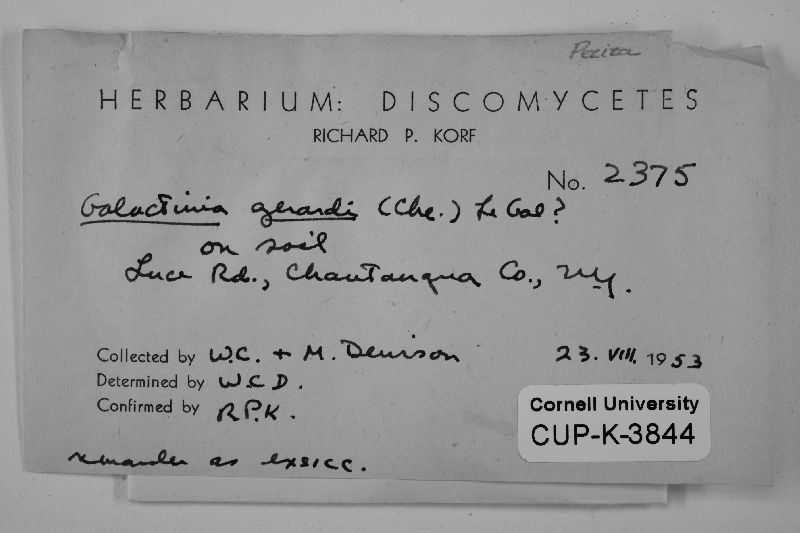 Peziza
HERBARIUM: DISCOMYCETES
RICHARD P. KORF
No. 2375
Galactinia gerardi (Cke.) Le Gal?
on soil
Luce Rd., Chautauqua Co., NY.
Collected by W.C. + M. Denison 23. VIII. 1953
Determined by W.C.D.
Confirmed by R.P.K.
Cornell University
CUP-K-3844
remainder as exsicc.